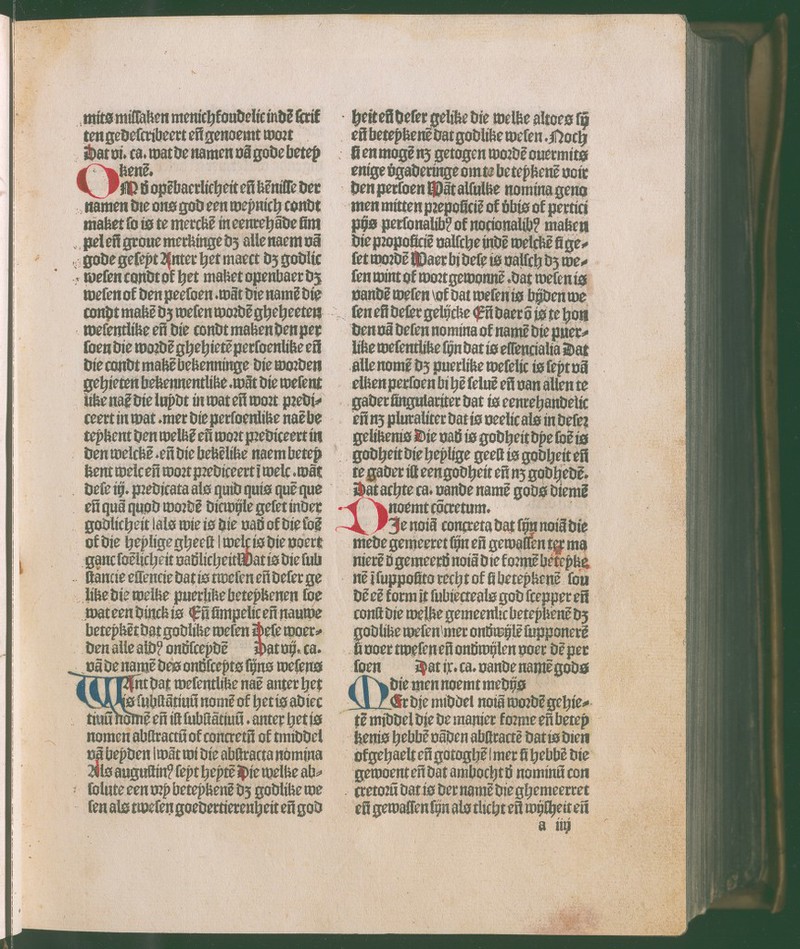 mits missaken menichfoudelic indē scrif
ten gedescribeert eñ genoemt wort
Dat vi. ca. wat de namen vā gode betey
kenē.
OM d̄ opēbaerlicheit eñ kēnisse der
namen die ons god een weynich condt
maket so is te merckē in eenrehāde sim
pel eñ groue merkinge dʒ alle naem vā
gode geseyt Anter het maect dʒ godlic
wesen condt of het maket openbaer dʒ
wesen of den peesoen .wāt die namē die
condt makē dʒ wesen wordē gheheeten
wesentlike eñ die condt maken den per
soen die wordē ghehietē persoenlike eñ
die condt makē bekenninge die worden
gehieten bekennentlike .wāt die wesent
like naē die luydt in wat eñ wort predi⸗
ceert in wat .mer die persoenlike naē be
teykent den welkē eñ wort prediceert in
den welckē .eñ die bekēlike naem betey
kent welc eñ wort prediceert ī welc .wāt
dese iij. predicata als quid quis quē que
eñ quā quod wordē dicwijle geset inder
godlicheit |als wie is die vad̄ of die soē
of die heylige gheest | welc is die voert
ganc soēlicheit vad̄licheit Wat is die sub
stancie essencie dat is twesen eñ deser ge
like die welke puerlike beteykenen soe
wat een dinck is Eñ simpelic eñ nauwe
beteykēt dat godlike wesen Dese woer⸗
den alle ald⁹ ond̄sceydē Dat vij. ca.
vā de namē des ond̄scepts sijns wesens
WAnt dat wesentlike naē anter het
is substātiuū nomē of het is adiec
tiuū nomē eñ ist substātiuū . anter het is
nomen abstractū of concretū of tmiddel
vā beyden |wāt wi die abstracta nomina
Als augustin⁹ seyt heytē Die welke ab⸗
solute een vry beteykenē dʒ godlike we
sen als twesen goedertierenheit eñ god
heit eñ deser gelike die welke altoes sij
eñ beteykenē dat godlike wesen .Noch
si en mogē nʒ getogen wordē ouermits
enige v̄gaderinge om te beteykenē voir
den persoen Wāt alsulke nomina geno
men mitten preposicē of v̄bis of pertici
pijs personalib⁹ of nocionalib⁹ maken
die proposicē valsche indē welckē si ge⸗
set wordē Waer bi dese is valsch dʒ we⸗
sen wint of wort gewonnē .dat wesen is
vandē wesen |of dat wesen is bijden we
sen eñ deser gelijcke Eñ daer ō is te hon
den vā desen nomina of namē die puer⸗
like wesentlike sijn dat is essencialia Dat
alle nomē dʒ puerlike weselic is seyt vā
elken persoen bi hē seluē eñ van allen te
gader singulariter dat is eenrehandelic
eñ nʒ pluraliter dat is veelic als in deser
gelikenis Die vad̄ is godheit dye soē is
godheit die heylige geest is godheit eñ
te gader ist een godheit eñ nʒ godhedē.
Dat achte ca. vande namē gods diemē
noemt cōcretum.
DIe noiā concreta dat sijn noiā die
mede gemeeret sijn eñ gewassen ter ma
nierē d̄ gemeerd̄ noiā die formē beteyke
nē ī supposito recht of si beteykenē sou
dē eē form it subiecte als god scepper eñ
const die welke gemeenlic beteykenē dʒ
godlike wesen |mer ond̄wijlē supponerē
si voer twesen eñ ond̄wijlen voer dē per
soen Dat ix. ca. vande namē gods
die men noemt medijs
MEr dje middel noiā wordē gehie⸗
tē middel dje de manier forme eñ betey
kenis hebbē vāden abstractē dat is dien
of gehaelt eñ gotoghē | mer si hebbē die
gewoent eñ dat ambocht d̄ nominū con
cretorū dat is der namē dje ghemeerret
eñ gewassen sijn als tlicht eñ wijsheit eñ
a iiij